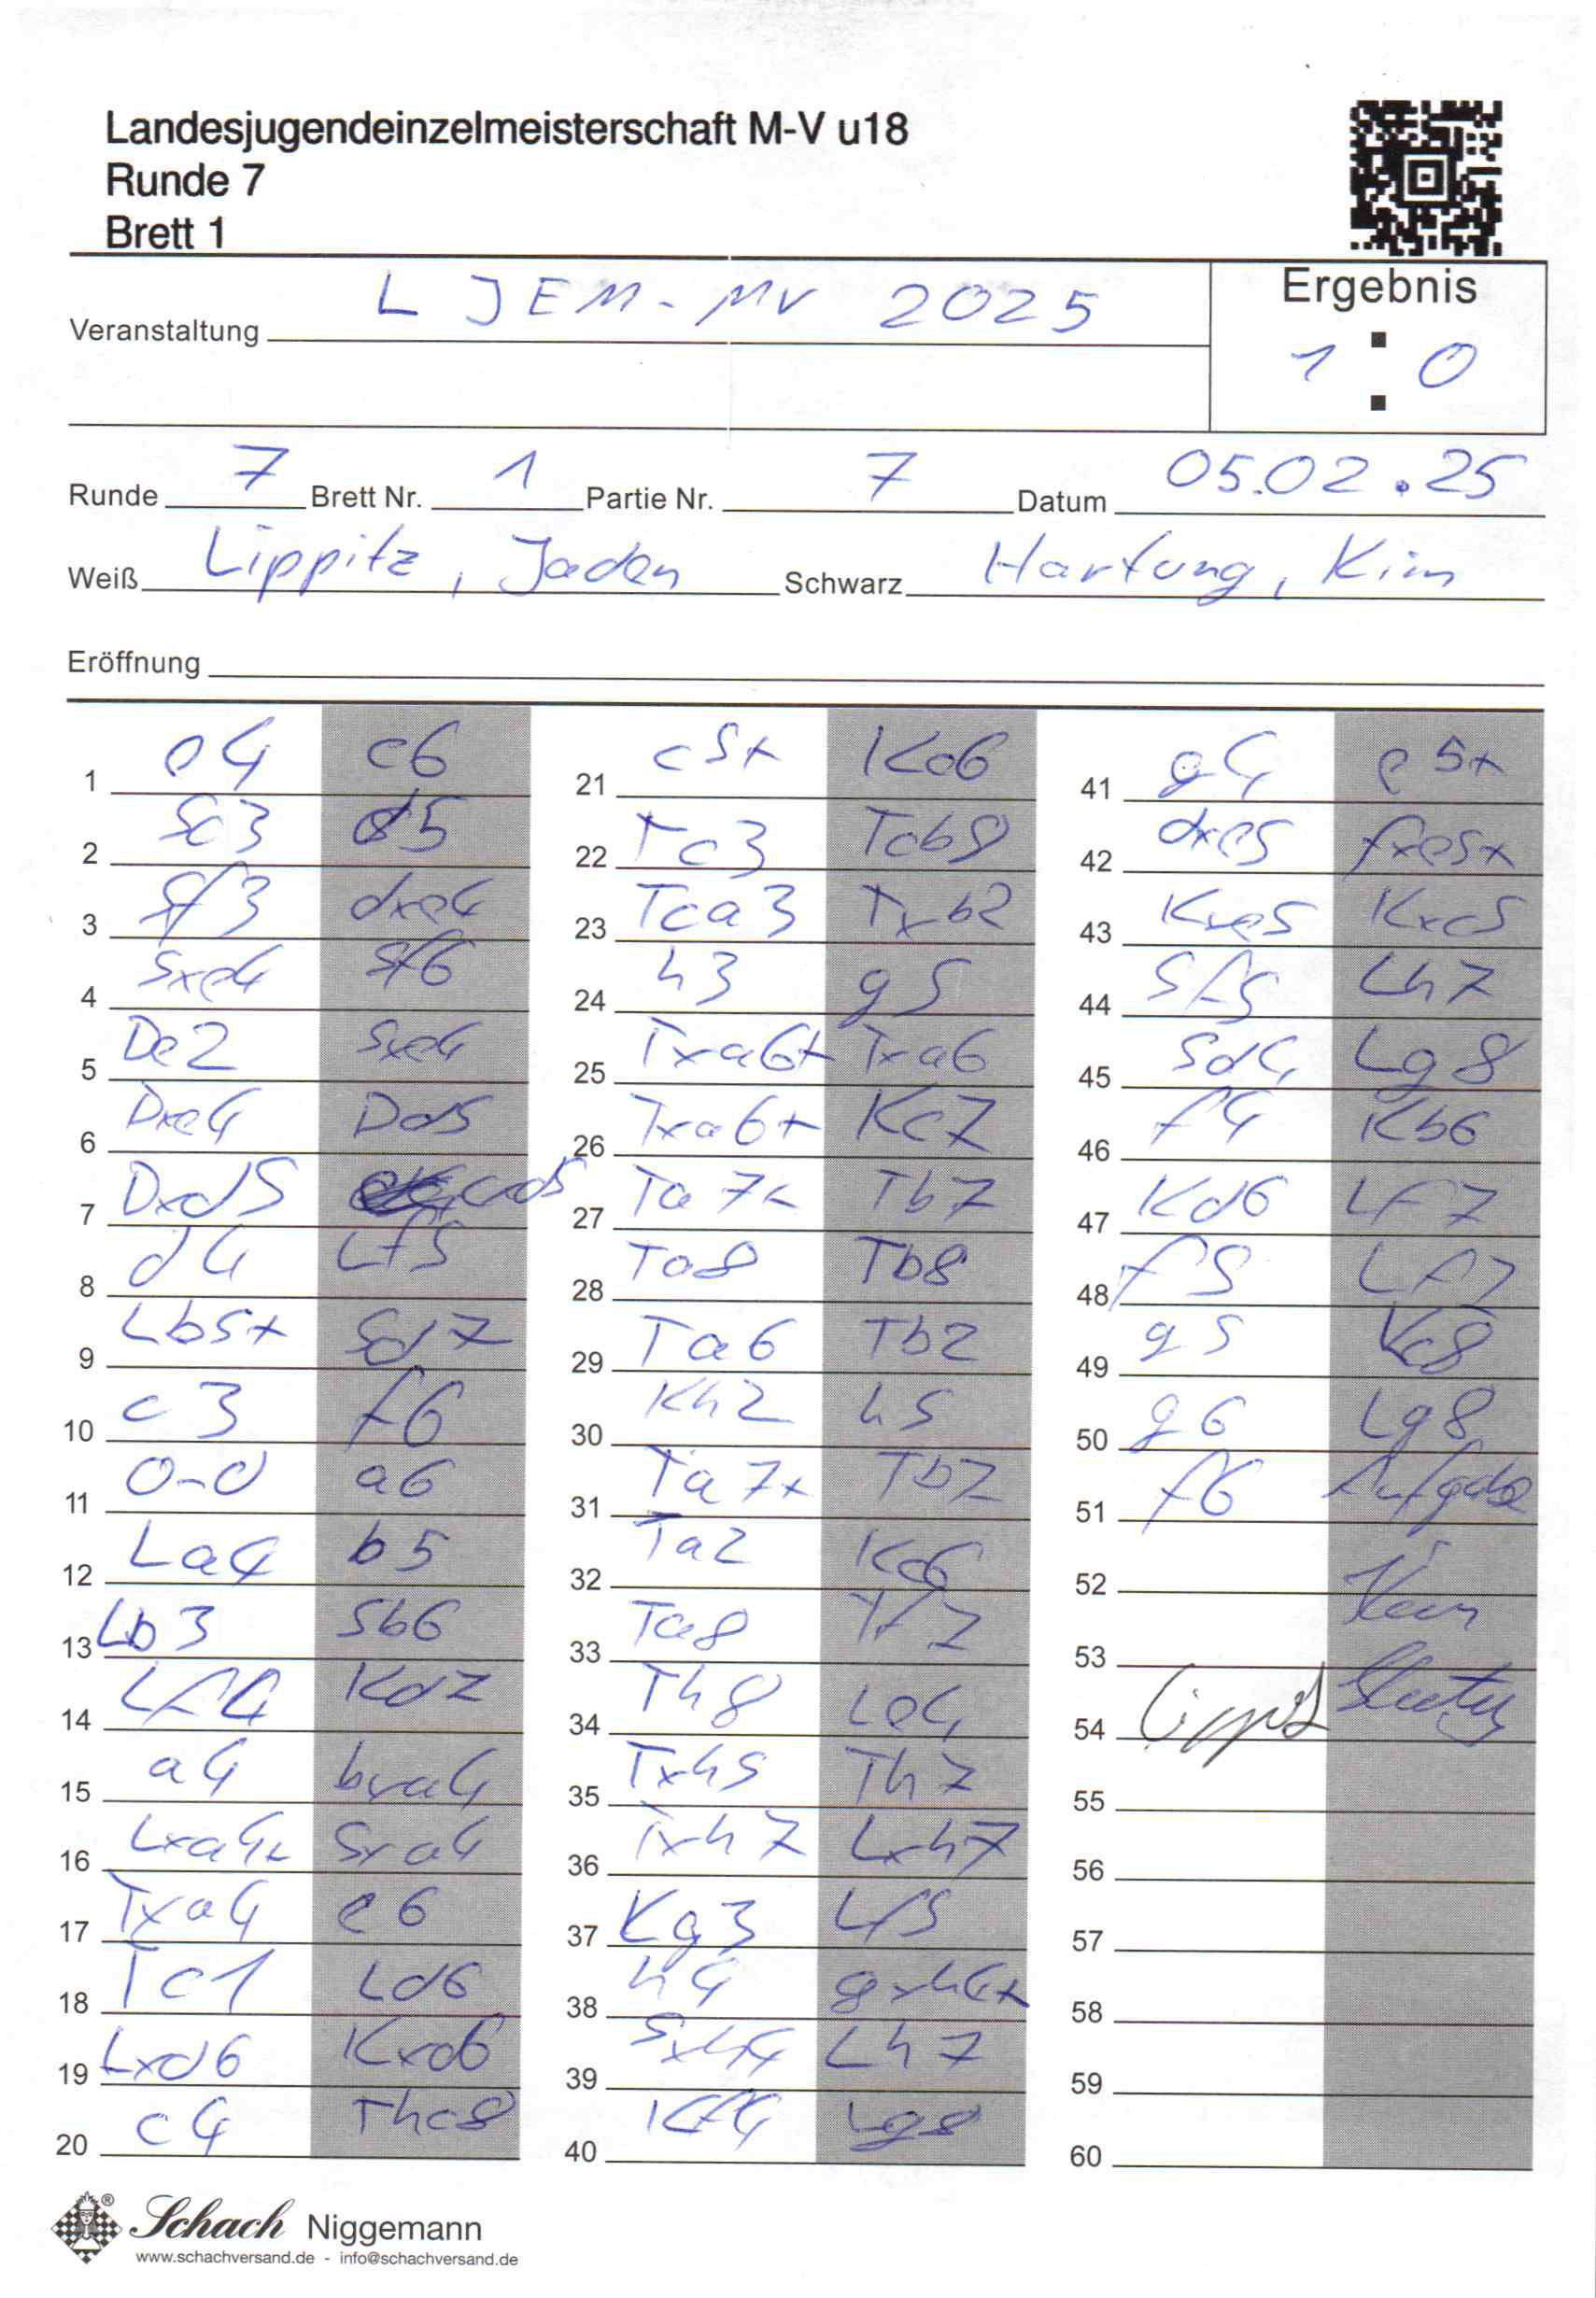 Landesjugendeinzelmeisterschaft M-V u18
Runde 7
Brett 1
Veranstaltung LJEM-MV 2025
Ergebnis
1 : 0
Runde 7 Brett Nr. 1 Partie Nr. 7 Datum 05.02.25
Weiß Lippitz, Jaden Schwarz Hartung, Kim
Eröffnung
1 e4 c6
2 Sc3 d5
3 Sf3 dxe4
4 Sxe4 Sf6
5 De2 Sxe4
6 Dxe4 Dd5
7 Dxd5 cxd5
8 d4 Lf5
9 Lb5+ Sd7
10 c3 f6
11 0-0 a6
12 La4 b5
13 Lb3 Sb6
14 Lf4 Kd7
15 a4 bxa4
16 Lxa4+ Sxa4
17 Txa4 e6
18 Tc1 Ld6
19 Lxd6 Kxd6
20 c4 Thc8
21 c5+ Kc6
22 Tc3 Tcb8
23 Tca3 Txb2
24 h3 g5
25 Txa6+ Txa6
26 Txa6+ Kc7
27 Ta7+ Tb7
28 Ta8 Tb8
29 Ta6 Tb2
30 Kh2 h5
31 Ta7+ Tb7
32 Ta2 Kc6
33 Ta8 Tf7
34 Th8 Le4
35 Txh5 Th7
36 Txh7 Lxh7
37 Kg3 Lf5
38 h4 gxh4+
39 Sxh4 Lh7
40 Kf4 Lg8
41 g4 e5+
42 dxe5 fxe5+
43 Kxe5 Kxc5
44 Sf5 Lh7
45 Sd4 Lg8
46 f4 Kb6
47 Kd6 Lf7
48 f5 Lf7
49 g5 Kc8
50 g6 Lg8
51 f6 Aufgabe
52
53
54
55
56
57
58
59
60
Schach Niggemann
www.schachversand.de - info@schachversand.de